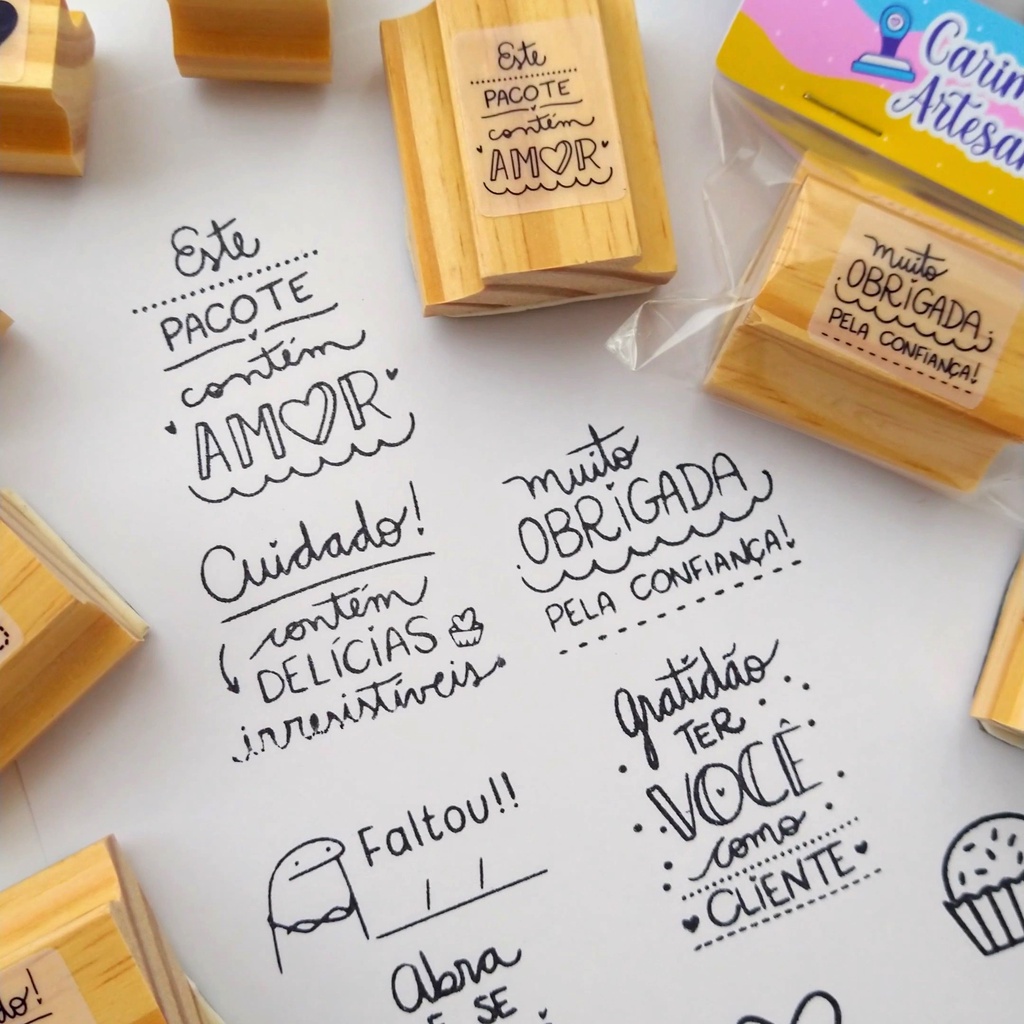 Este
PACOTE
contém
AMOR
Artesan
muito
OBRIGADA
PELA CONFIANÇA!
Este
PACOTE
contém
AMOR
Cuidado!
contém
DELÍCIAS
irresistíveis
muito
OBRIGADA
PELA CONFIANÇA!
gratidão
TER
VOCÊ
como
CLIENTE
Faltou!!
/ /
Abra
E SE
do!